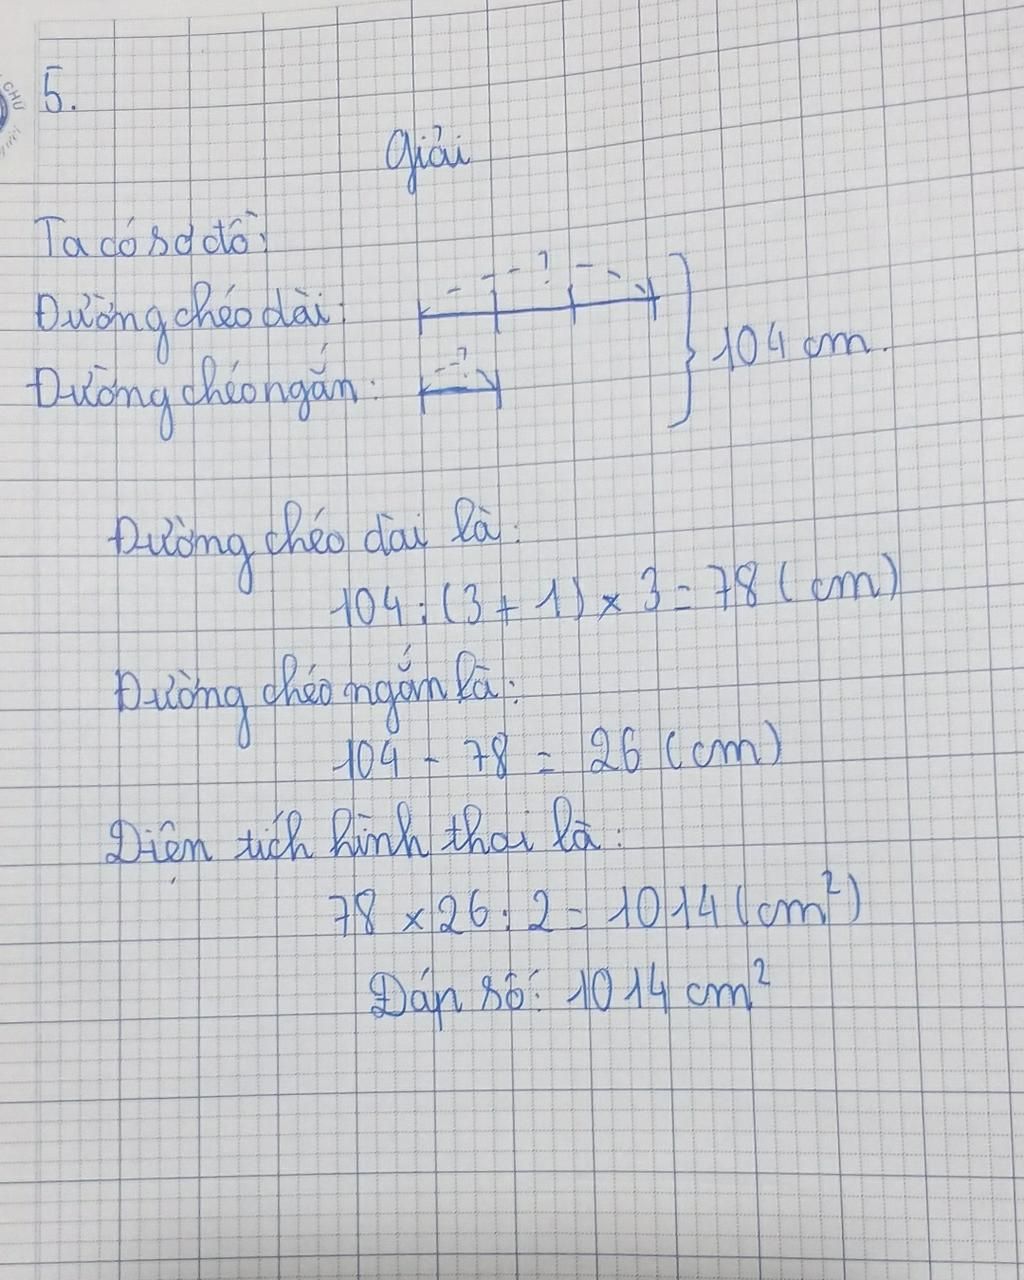 5.
Giải
Ta có sơ đồ:
Đường chéo dài: ?
Đường chéo ngắn: ?
104 cm.
Đường chéo dài là:
104 : (3 + 1) × 3 = 78 (cm)
Đường chéo ngắn là:
104 - 78 = 26 (cm)
Diện tích hình thoi là:
78 × 26 : 2 = 1014 (cm²)
Đáp số: 1014 cm²